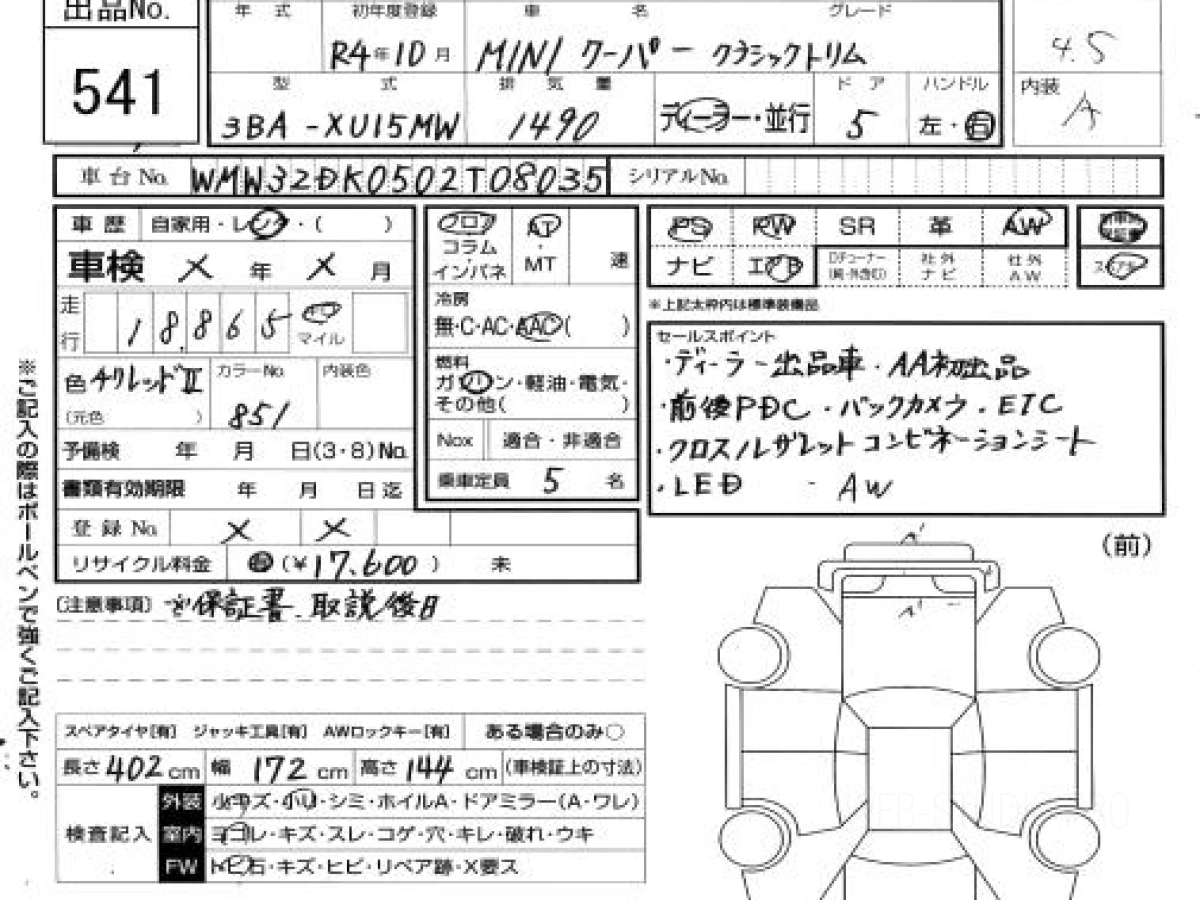 出品No.
541
年 式 初年度登録 車 名 グレード
R4年10月 MINI クーパー クラシックトリム
型 式 排 気 量 ド ア ハンドル
3BA-XU15MW 1490 ディーラー・並行 5 左・右
4.5
内装 A
車台No. WMW32DK0502T08035 シリアルNo.
車 歴 自家用・レンタ・( )
車検 × 年 × 月
走行 18,865 キロ マイル
色 チリレッドⅡ カラーNo. 851 内装色
(元色 )
予備検 年 月 日(3・8)No.
書類有効期限 年 月 日迄
登録No. × ×
リサイクル料金 (¥17,600) 未
フロア コラム・インパネ AT・MT 速
冷房
無・C・AC・AAC( )
燃料
ガソリン・軽油・電気・
その他( )
Nox 適合・非適合
乗車定員 5 名
PS PW SR 革 AW
ナビ エアB Dチューナー 社外ナビ 社外AW スペアキー
※上記太枠内は標準装備品
セールスポイント
・ディーラー出品車・AA初出品
・前後PDC・バックカメラ・ETC
・クロス/レザレットコンビネーションシート
・LED ・AW
[注意事項] 保証書、取説後日
(前)
スペアタイヤ[有] ジャッキ工具[有] AWロックキー[有] ある場合のみ○
長さ402cm 幅172cm 高さ144cm (車検証上の寸法)
検査記入
外装 小キズ・小凹・シミ・ホイルA・ドアミラー(A・ワレ)
室内 ヨゴレ・キズ・スレ・コゲ・穴・キレ・破れ・ウキ
FW トビ石・キズ・ヒビ・リペア跡・X要ス
※ご記入の際はボールペンで強くご記入下さい。